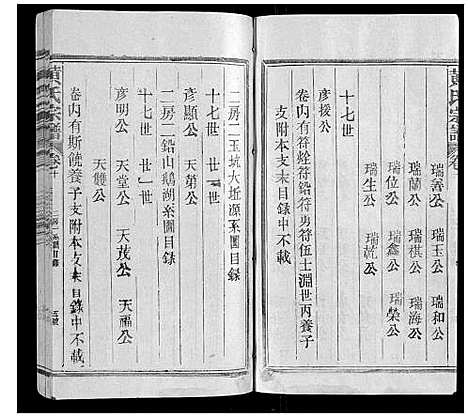 黄氏宗譜 卷首
瑞壽公 瑞玉公 瑞和公
瑞蘭公 瑞祺公 瑞海公
瑞位公 瑞鑫公 瑞榮公
瑞生公 瑞乾公
十七世
彥援公
卷內有符烇符鉛符勇符伍士淵世丙養子
支附本支末目錄中不載
二房二玉坑大坵源系圖目錄
十七世 廿世
彥顯公 天第公
二房二鉛山鵝湖系圖目錄
十七世 廿一世
彥明公 天堂公 天茂公 天福公
天雙公
卷內有斯饒養子支附本支末目錄中不載
黄氏宗譜